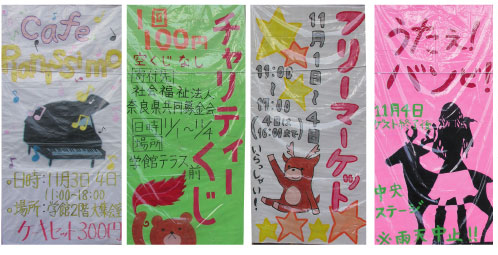 Cafe
日時:11月3日4日
11:00-18:00
場所:学館2階大集会室
ケーキセット300円
1回
100円
空くじなし
寄付先
社会福祉法人
奈良県共同募金会
日時 11/1〜1/4
場所
学館テラス前
チャリティーくじ
フリーマーケット
11月1日〜4日
11:00
〜
17:00
(4日は
16:00まで)
いらっしゃい!
うたえ!
バンビ!
11月4日
中央
ステージ
※雨天中止!!